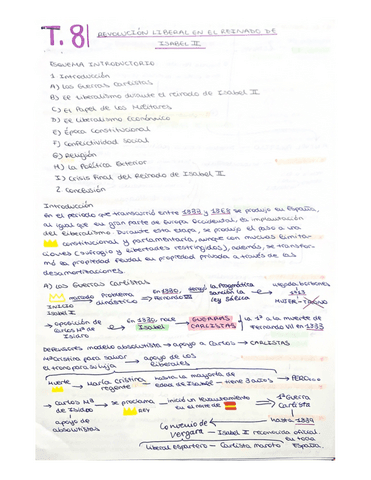 T.8| REVOLUCIÓN LIBERAL EN EL REINADO DE
ISABEL II
ESQUEMA INTRODUCTORIO
1. Introducción
A) Las Guerras Carlistas
B) El liberalismo durante el reinado de Isabel II
C) El Papel de los Militares
D) El Liberalismo Económico
E) Época Constitucional
F) Conflictividad Social
G) Religión
H) La Política Exterior
I) Crisis Final del Reinado de Isabel II
2. Conclusión
Introducción
En el periodo que transcurrió entre 1833 y 1868 se produjo en España,
al igual que en gran parte de Europa Occidental, la implantación
del liberalismo. Durante esta etapa, se produjo el paso a una
constitucional y parlamentaria, aunque con muchas limita-
ciones (sufragio y libertades restringidos), además, se transfor-
mó la propiedad feudal en propiedad privada a través de las
desamortizaciones.
A) Las Guerras Carlistas
reinado Problema dinástico en 1830, Fernando VII la Pragmática Sanción la Ley Sálica llegada borbones
INICIO
Isabel II
MUJER TRONO
→ oposición de Carlos Mª de Isidro en 1830, nace Isabel GUERRAS CARLISTAS la 1ª a la muerte de Fernando VII en 1833
Defensores modelo absolutista → apoyo a Carlos → CARLISTAS
Mª Cristina para salvar el trono para su hija → apoyo de los liberales
Muerte → María Cristina regente hasta la mayoría de edad de Isabel - tiene 3 años → PERO...
→ Carlos Mª de Isidro → se proclama REY inició un levantamiento en el norte de 1ª Guerra Carlista
apoyo de absolutistas
hasta 1839
Convenio de Vergara - Isabel II reconocida oficial. en toda España.
Liberal Espartero - Carlista Maroto